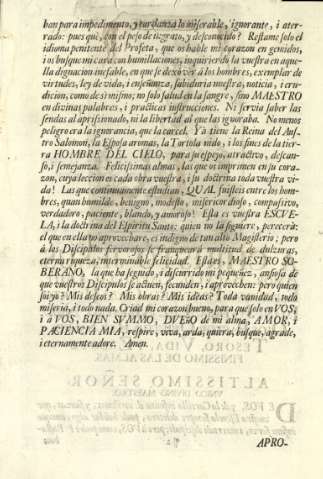 ban para impedimento, y tardanza lo miserable, ignorante, i ater-
rado: pues què, con el peso de ingrato, y desconocido? Restame solo el
idioma penitente del Profeta, que os hable mi corazon en gemidos,
i os busque mi cara con humillaciones, inquiriendo la vuestra en aque-
lla dignacion inefable, en que se dexò vèr à los hombres, exemplar de
virtudes, ley de vida, i enseñanza, sabiduria nuestra, noticia, i eru-
dicion, camo desi mismo; no solo salud en la sangre, sino MAESTRO
en divinas palabras, i practicas instrucciones. Ni servia saber las
sendas al aprisionado, ni la libertad al que las ignoraba. No menos
peligro era la ignorancia, que la carcel. Yà tiene la Reina del Aus-
tro Salomòn, la Esposa aromas, la Tortola nido, i los fines de la tier-
ra HOMBRE DEL CIELO, para su espejo, atractivo, descan-
so, i semejanza. Felicissimas almas, las que os imprimen en su cora-
zon, cuya leccion es cada obra vuestra, i su doctrina toda vuestra vi-
da! Las que continuamente estudian, QUAL fuisteis entre los hom-
bres, quan humilde, benigno, modesto, misericordioso, compasivo,
verdadero, paciente, blando, y amoroso! Esta es vuestra ESCUE-
LA, i la doctrina del Espiritu Santo: quien no la siguiere, perecerà:
el que en ella no aprovechare, es indigno de tan alto Magisterio; pero
à los Discipulos fervorosos se franquearà multitud de dulzuras,
eterna riqueza, interminable felicidad. Esta es, MAESTRO SO-
BERANO, la que ha seguido, i discurrido mi pequeñez, ansiosa de
que vuestros Discipulos se activen, fecunden, i aprovechen: pero quien
soi yo? Mis deseos? Mis obras? Mis ideas? Toda vanidad, todo
miseria, i todo nada. Criad mi corazon bueno, para que solo en VOS,
i à VOS, BIEN SUMMO, DUEÑO de mi alma, AMOR, i
PACIENCIA MIA, respire, viva, arda, quiera, busque, agrade,
i eternamente adore. Amen.
APRO-